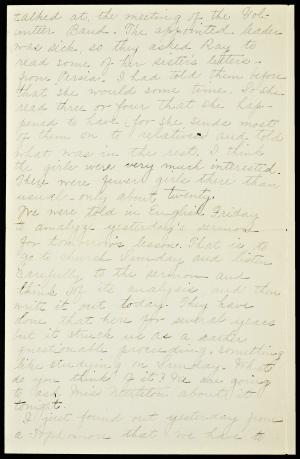 talked at the meeting of the Vol-
unteer Band. The appointed leader
was sick, so they asked Ray to
read some of her sister's letters
from Persia. I had told them before
that she would some time. So she
read three or four that she hap-
pened to have (for she sends most
of them on to relatives) and told
what was in the rest. I think
the girls were very much interested.
There were fewer girls there than
usual - only about twenty.
We were told in English Friday
to analyze yesterday's sermon
for tomorrow's lesson. That is to
go to church Sunday and listen
carefully to the sermon and
think of its analysis, and then
write it out today. They have
done that here for several years
but it struck us as a rather
questionable proceeding, something
like studying on Sunday. What
do you think of it? We are going
to ask Miss about it
tonight.
I just found out yesterday from
a Sophomore that we have to